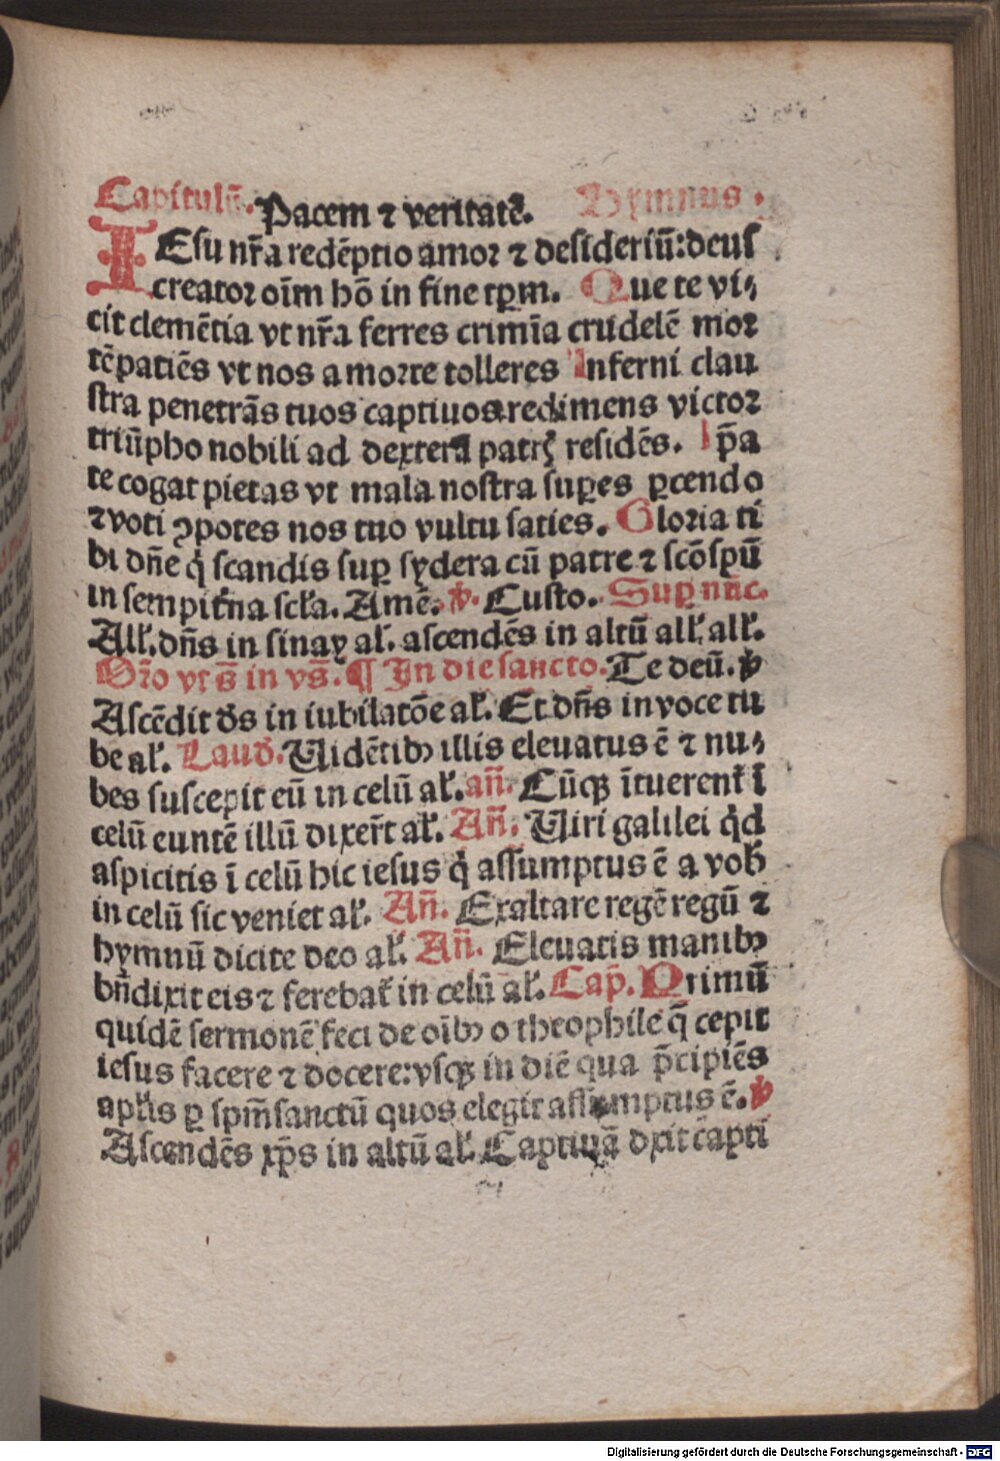 Capitulū. Pacem ⁊ veritatē. Hymnus.
IEsu nr̄a redēptio amor ⁊ desideriū: deus
creator oīm hō in fine tꝑm. Que te vi⸗
cit clemētia vt nr̄a ferres crimīa crudelē mor
tē patiēs vt nos a morte tolleres Inferni clau
stra penetrās tuos captiuos redimens victor
triūpho nobili ad dexterā patrꝭ residēs. Ip̄a
te cogat pietas vt mala nostra suꝑes ꝑcendo
⁊ voti ꝯpotes nos tuo vultu saties. Gloria ti
bi dn̄e q̇ scandis suꝑ sydera cū patre ⁊ scō spū
in sempit̄na scl̄a. Amē. ℣. Custo. Suꝑ nūc.
All̓. dn̄s in sinay al̓. ascendēs in altū all̓. all̓.
Or̄o vt s̄ in vs̄. ¶ In die sancto. Te deū. ℣
Ascēdit ds̄ in iubilatōe al̓. Et dn̄s in voce tu
be al̓. Laud̓. Uidētibꝰ illis eleuatus ē ⁊ nu⸗
bes suscepit eū in celū al̓. an̄. Cūqꝫ ītuerent̄ ī
celū euntē illū dixer̄t al̓. An̄. Uiri galilei q̇d
aspicitis ī celū hic iesus q̇ assumptus ē a vob̓
in celū sic veniet al̓. An̄. Exaltare regē regū ⁊
hymnū dicite deo al̓. An̄. Eleuatis manibꝰ
bn̄dixit eis ⁊ ferebat̄ in celū al̓. Cap̄. Primū
quidē sermonē feci de oībꝰ o theophile q̄ cepit
iesus facere ⁊ docere: vsqꝫ in diē qua p̄cipiēs
apl̄is ꝑ spm̄ sanctū quos elegit assumptus ē. ℣
Ascendēs xp̄s in altū al̓. Captiuā dxit capti
Digitalisierung gefördert durch die Deutsche Forschungsgemeinschaft - DFG